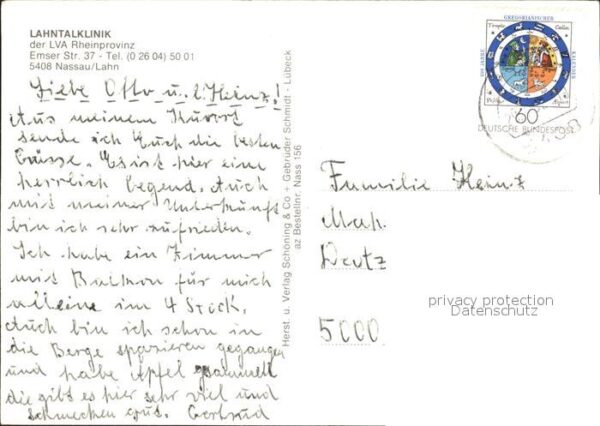 LAHNTALKLINIK
der LVA Rheinprovinz
Emser Str. 37 - Tel. (0 26 04) 50 01
5408 Nassau/Lahn
Liebe Otto u. l. Heinz!
Aus meinem Kurort
sende ich Euch die besten
Grüsse. Es ist hier eine
herrlich Gegend. Auch
mit meiner Unterkunft
bin ich sehr zufrieden.
Ich habe ein Zimmer
mit Balkon für mich
alleine im 4 Stock.
Auch bin ich schon in
die Berge spazieren gegangen
und habe Äpfel gsammelt
die gibt es hier sehr viel und
schmecken gut. Gertrud
Herst. u. Verlag Schöning & Co + Gebrüder Schmidt - Lübeck
az Bestellnr. Nass 156
GREGORIANISCHER
KALENDER
400 JAHRE
60
DEUTSCHE BUNDESPOST
Familie Heinz
Deutz
5000
privacy protection
Datenschutz